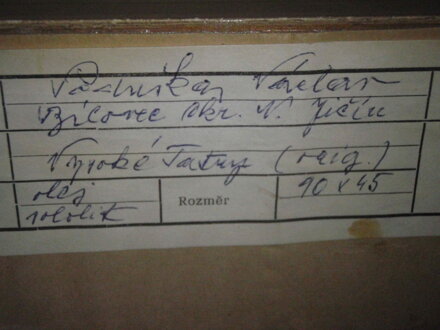 Václav
Bílovec okr. N. Jičín
Vysoké Tatry (orig.)
olej
sololit
Rozměr
90 x 45